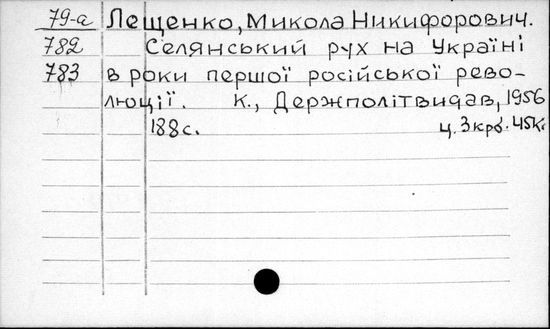 79-а Лещенко, Микола Никифорович.
782 Селянський рух на Україні
783 в роки першої російської рево-
люції. К., Держполітвидав, 1956
188с. ц. 3крб. 45к.